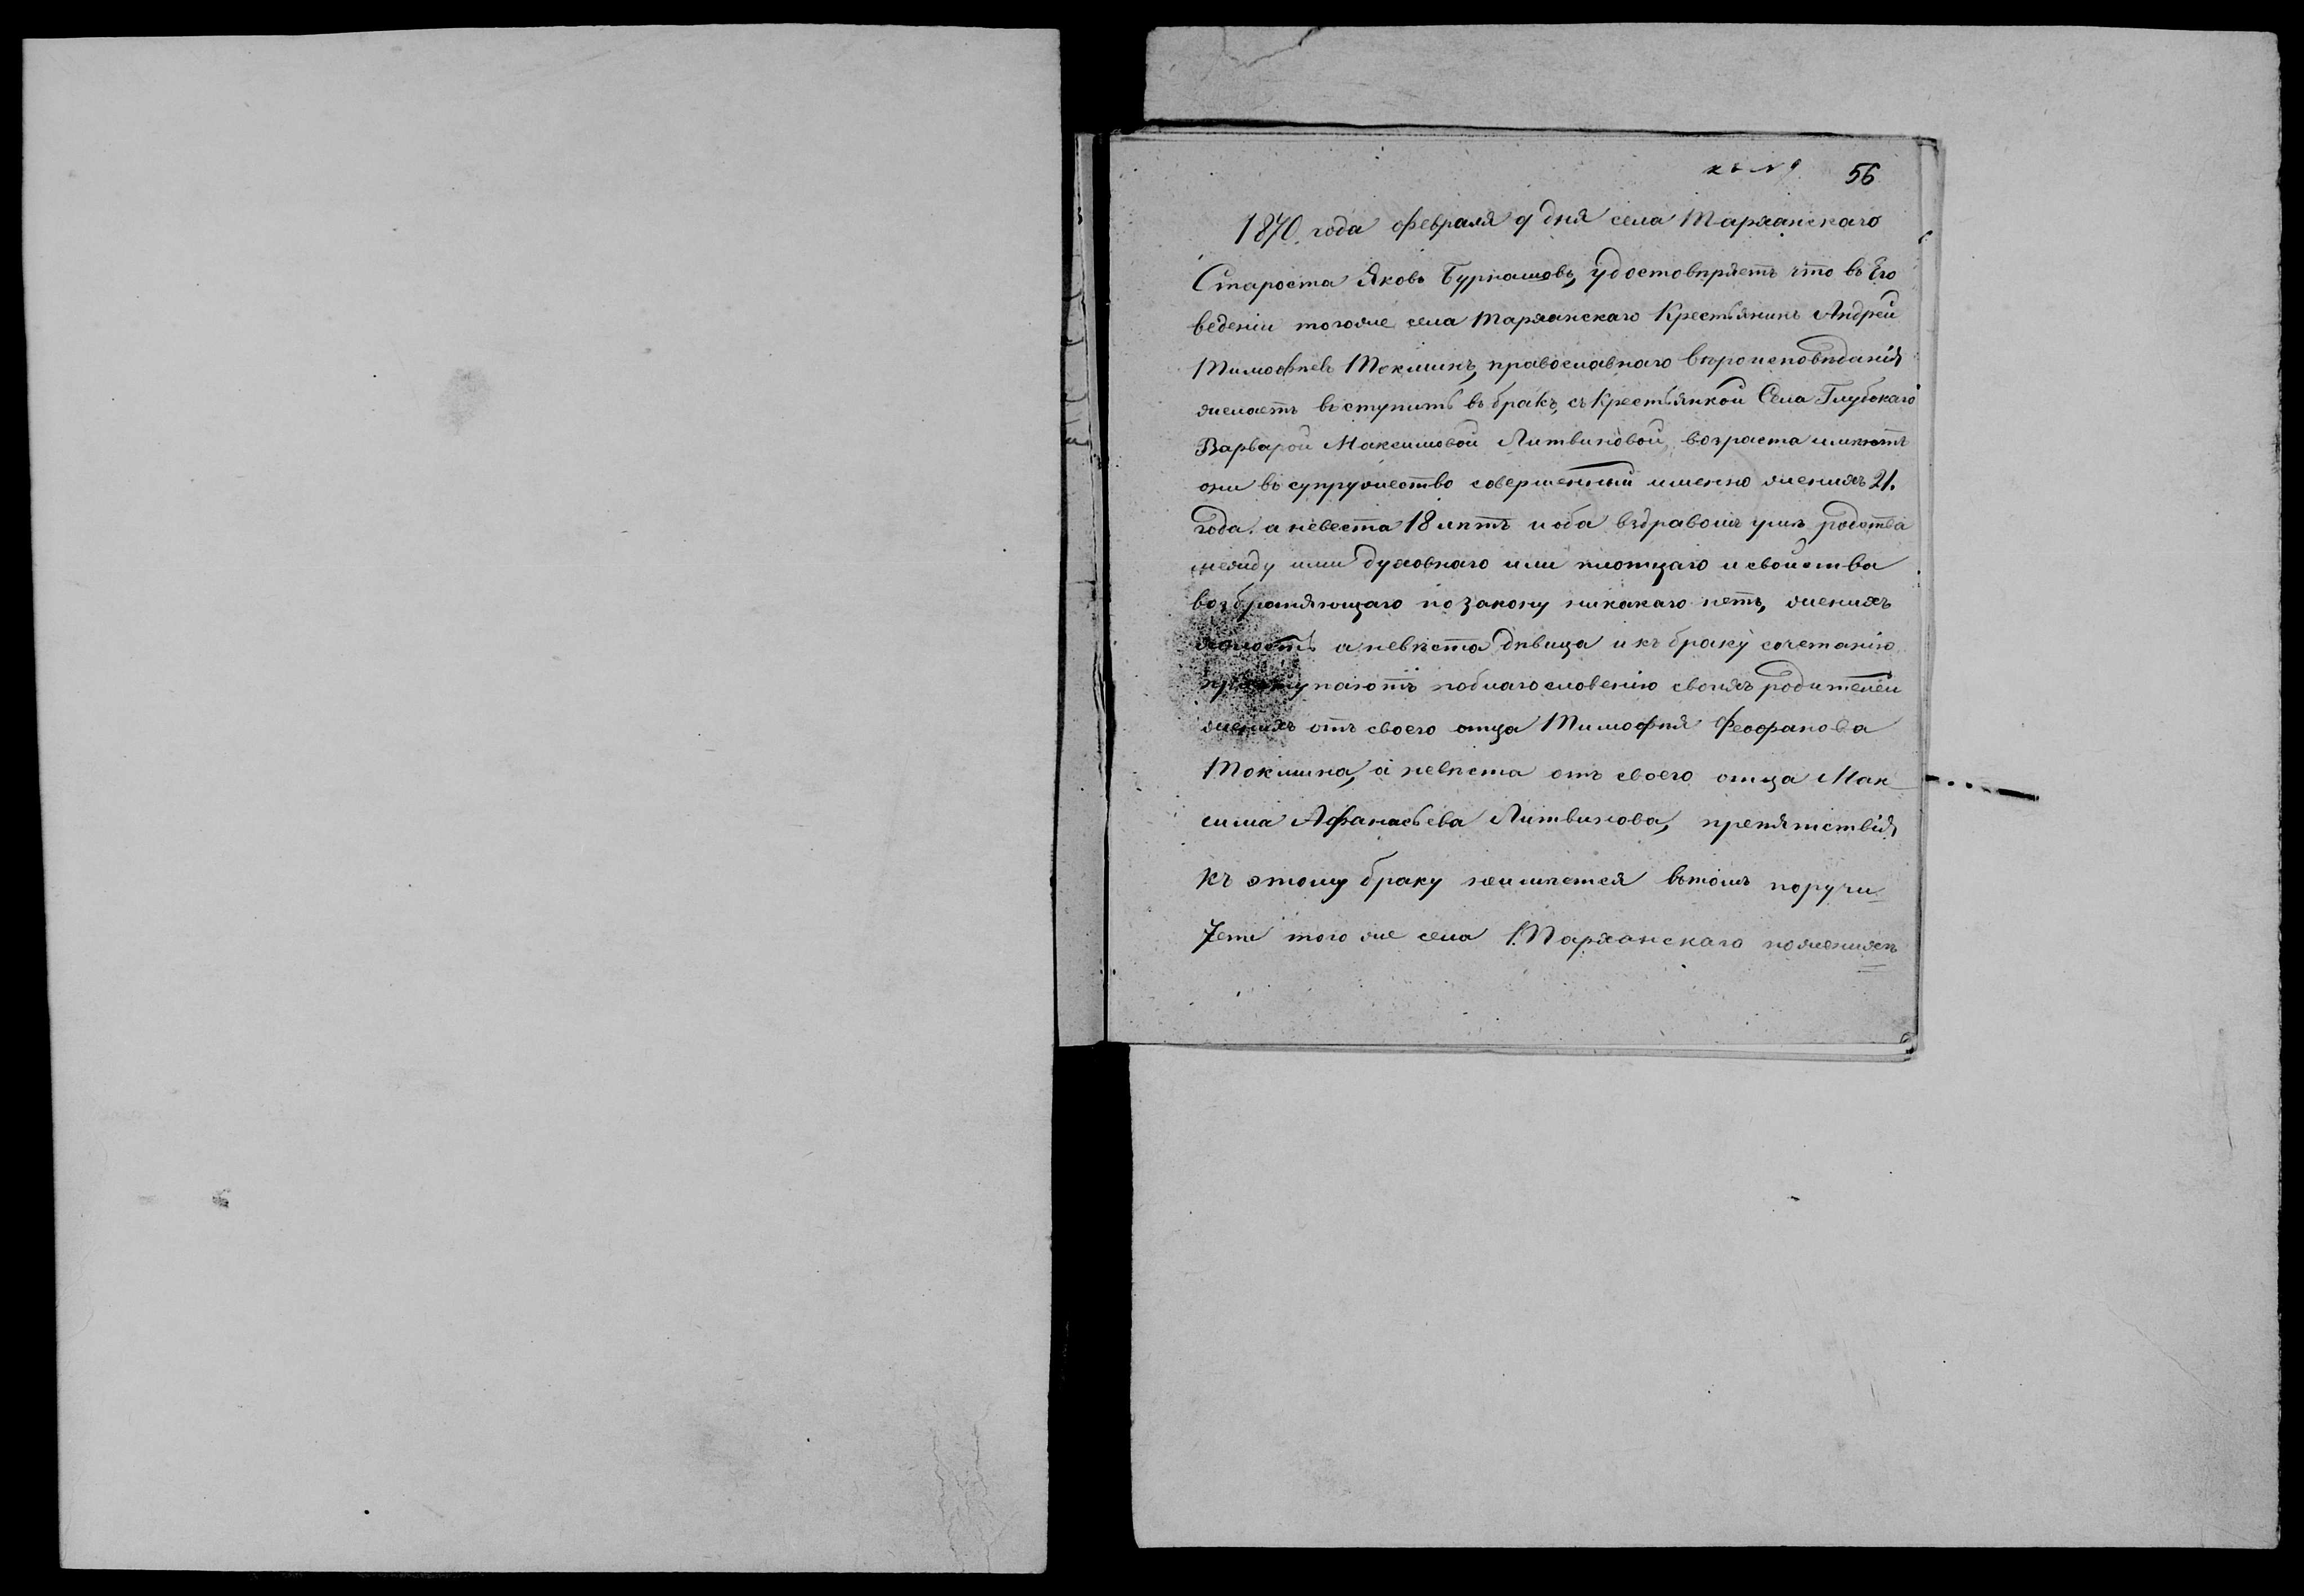 къ № 9 56
1870 года февраля 9 дня села Тарханскаго
Староста Яковъ Бурнашовъ, удостовѣряетъ что въ Его
веденіи тогоже села Тарханскаго Крестьянинъ Андрей
Тимофѣевъ Токминъ, православнаго вѣроисповѣданія
желаетъ вступить въ бракъ, съ Крестьянкой Села Глубокаго
Варварой Максимовой Литвиновой, возраста имѣютъ
они въ супружество совершенный именно женихъ 21.
года. а невеста 18 лѣтъ и оба въздравомъ умѣ родства
между ими духовнаго или плотцаго и свойства
возбраняющаго по закону никакаго нетъ, женихъ
холостъ а невѣста дѣвица и къ браку сочетанію
приступаютъ поблагословенію своихъ родителей
женихъ отъ своего отца Тимофѣя Феофанова
Токмина, а невѣста отъ своего отца Мак
сима Афанасьева Литвинова, препятствія
къ этому браку неимѣется вътомъ поручи
тели того же села Тарханскаго поженихѣ